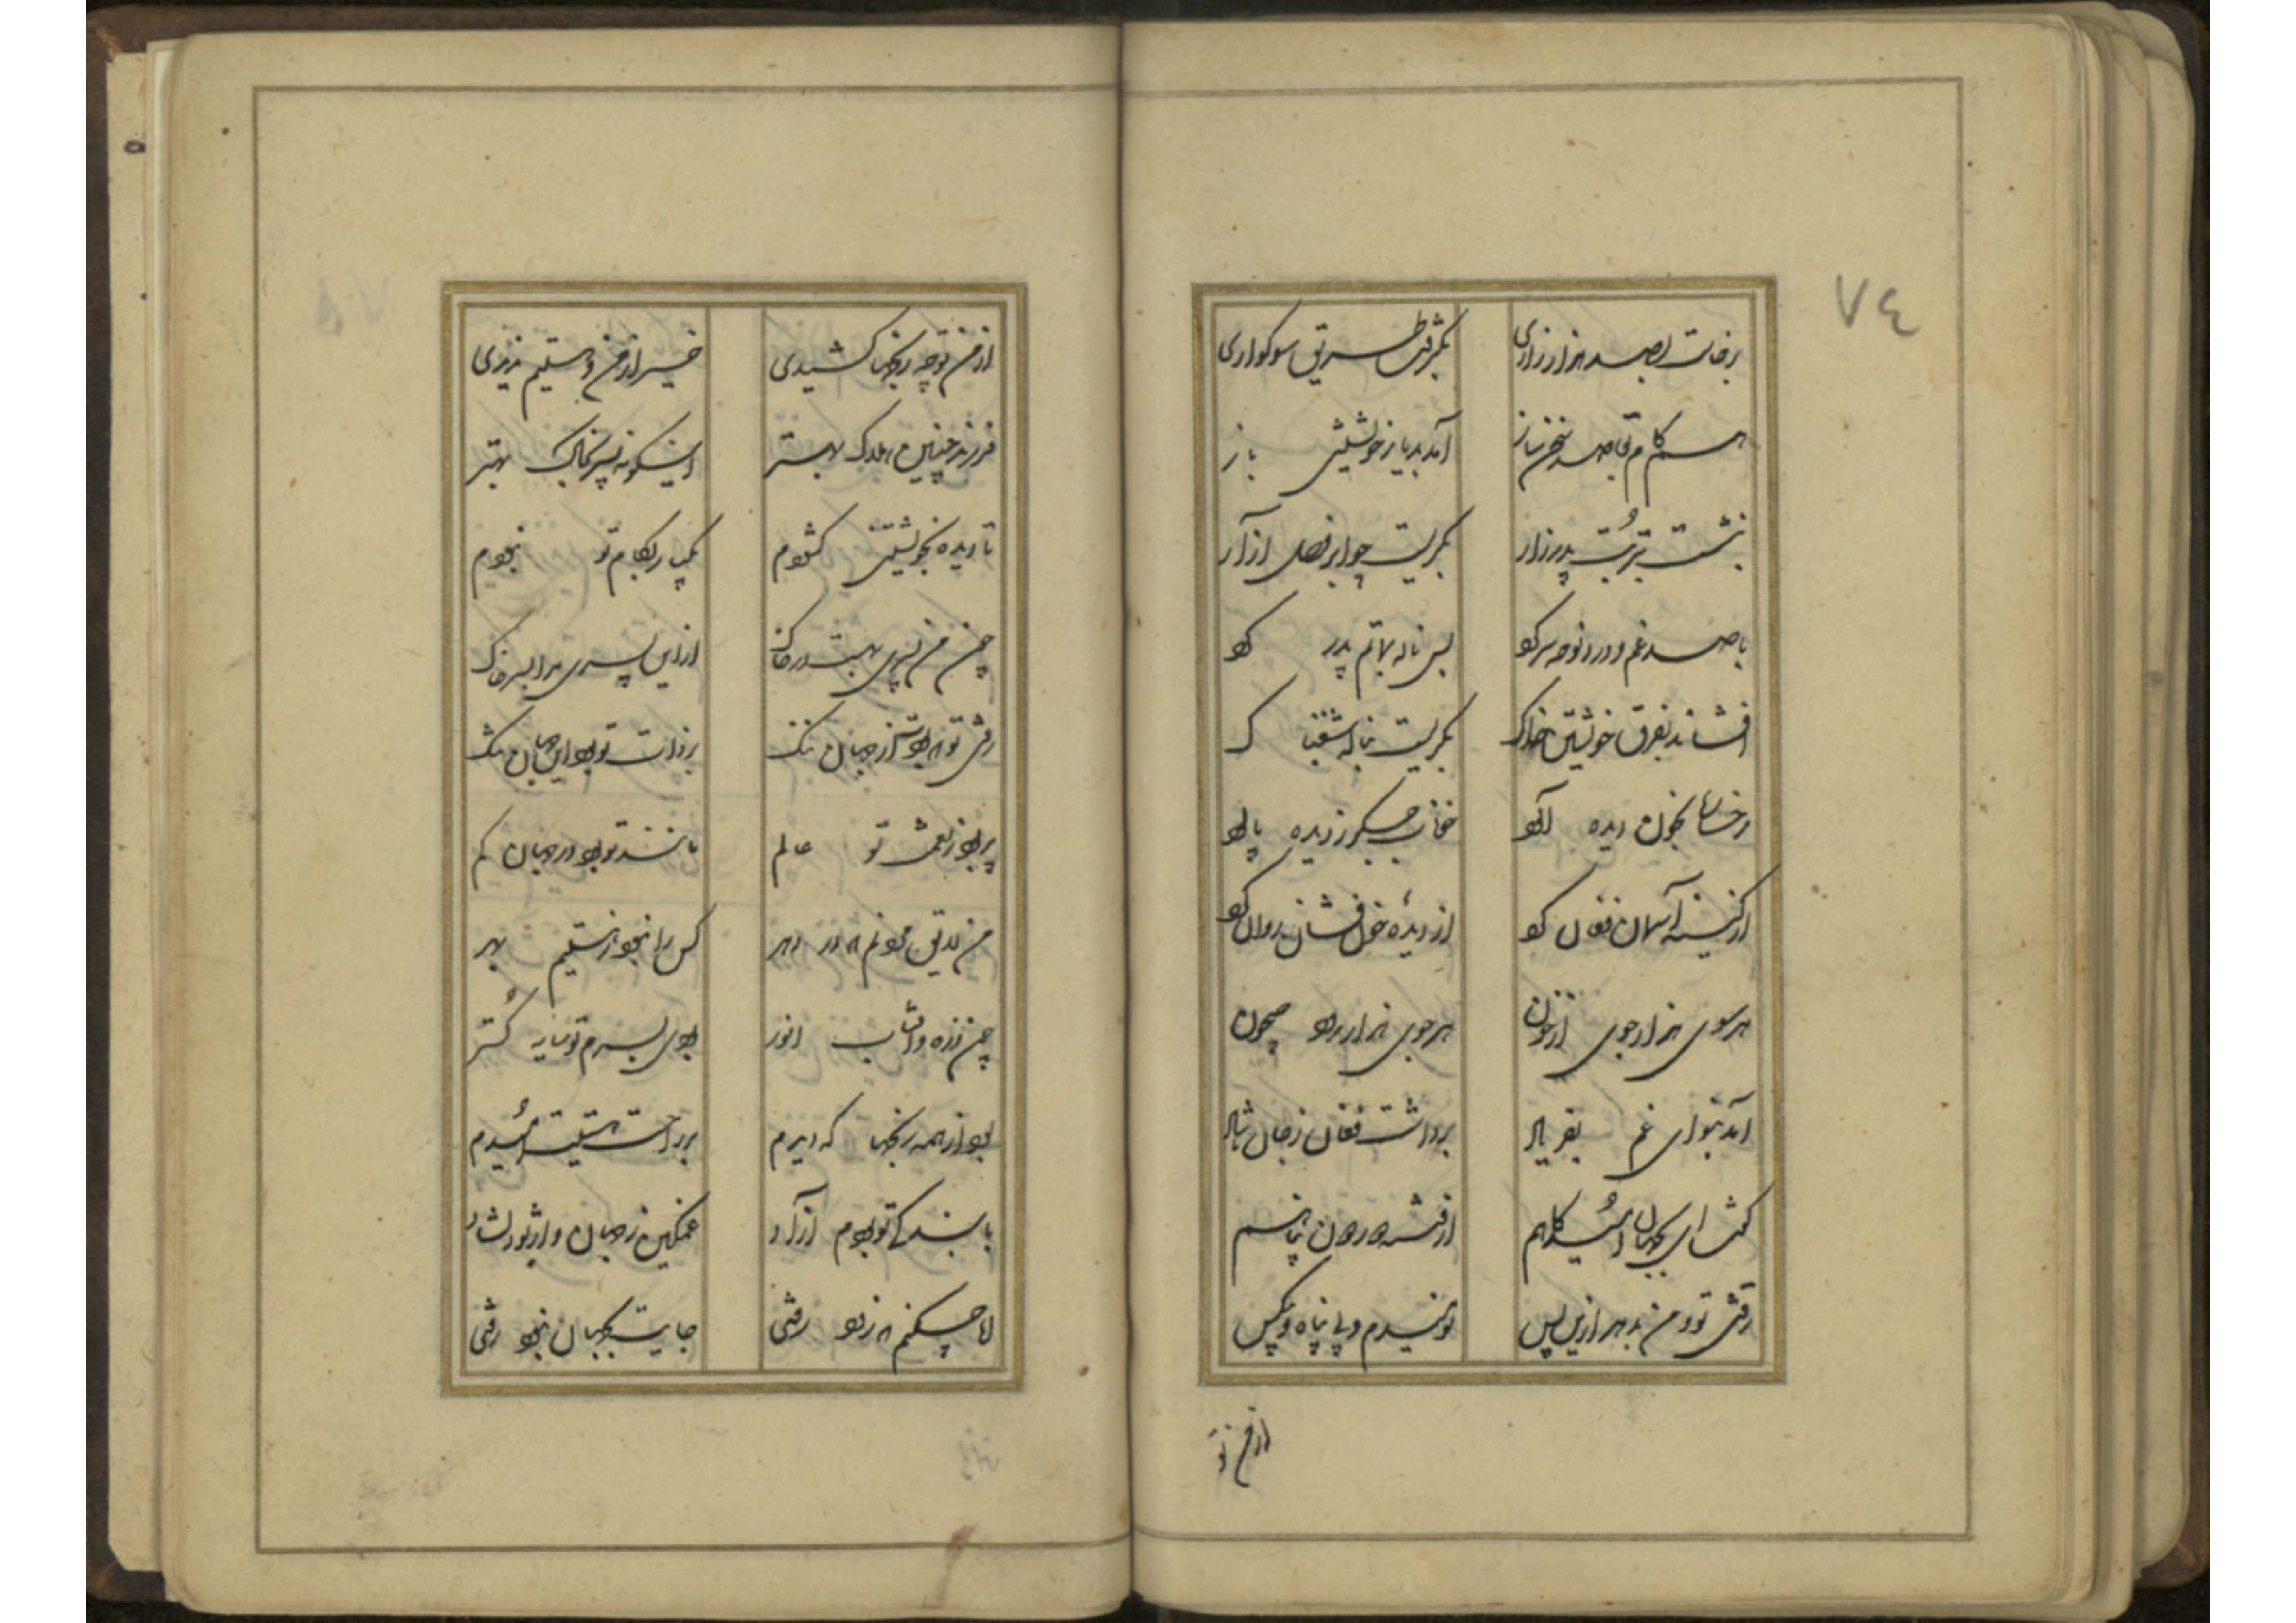 ٧٤
برخاست بصد هزار زاری بگرفت طریق سوکواری
هم کام قاصد سخن ساز آمد بدیار خویشتن باز
بنشست بتربت پدر زار بگریست چو ابر فصل آزار
با صد غم و درد نوحه سر کرد بس ناله بماتم پدر کرد
افشاند بفرق خویشتن خاک بگریست بناله شغبناک
رخسار بخون دیده آلود خوناب جگر ز دیده پالود
از کینه آسمان فغان کرد از دیده خون فشان روان کرد
هر سوی هزار جوی از خون هر جوی هزار رود جیحون
آمد بنوای غم بفریاد برداشت فغان ز جان ناشاد
کفت ای بجهان امیدکاهم از فتنه دوران پناهم
رفتی تو و من بدهر ازین پس نومیدم و بی پناه و بیکس
از من تو
از من تو چه رنجها کشیدی خیر از من و هستیم ندیدی
فرزند چنین هلاک بهتر وینکونه پسر بخاک بهتر
تا دیده بخویشتن کشودم یکبار بکام تو نبودم
چون من پسری بهست در خاک از این پسری مرا بسر خاک
رفتی تو که بودت از جهان ننک بر ذات تو بود این جهان تنک
پر بود ز نعمت تو عالم مانند تو بود در جهان کم
من لایق بودنم نه در دهر کس را نبود ز هستیم بهر
چون ذره و آفتاب انور بودی بسرم تو سایه کستر
بود از همه رنجها که دیدم بر ذات تو هستیت امیدم
با بندکی تو بودم آزاد غمکین ز جهان و از تو دلشاد
اما چکنم که زود رفتی جایت بجهان نبود رفتی